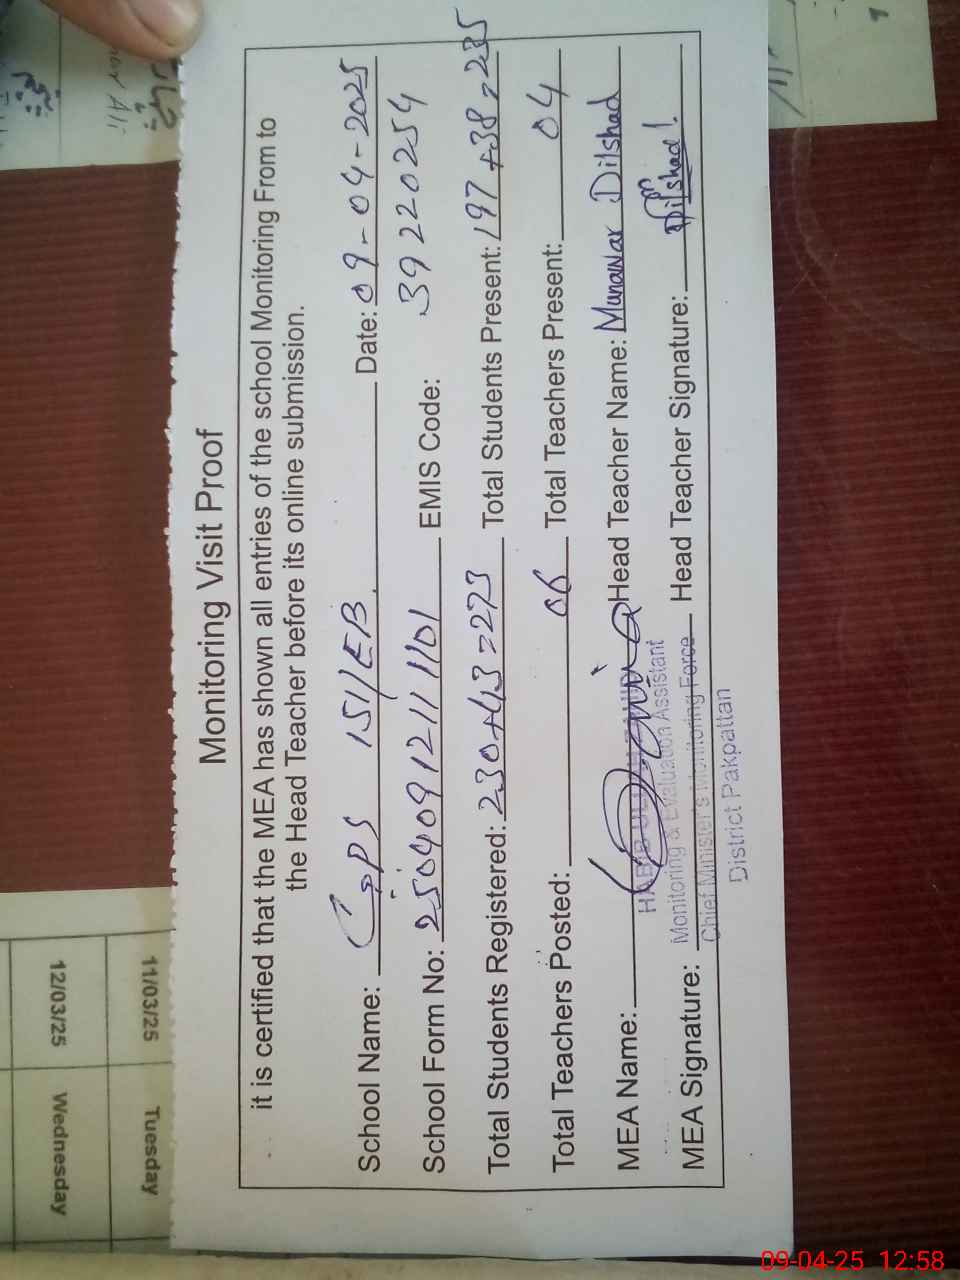 Monitoring Visit Proof
it is certified that the MEA has shown all entries of the school Monitoring From to
the Head Teacher before its online submission.
School Name: GPS 151/EB Date: 09-04-2025
School Form No: 25040912111101 EMIS Code: 39220254
Total Students Registered: 230+43=273 Total Students Present: 197+38=235
Total Teachers Posted: 06 Total Teachers Present: 04
MEA Name: Head Teacher Name: Munawar Dilshad
HABIB ULLAH
Monitoring & Evaluation Assistant
MEA Signature: Head Teacher Signature: Dilshad
Chief Minister's Monitoring Force
District Pakpattan
11/03/25 Tuesday
12/03/25 Wednesday
09-04-25 12:58